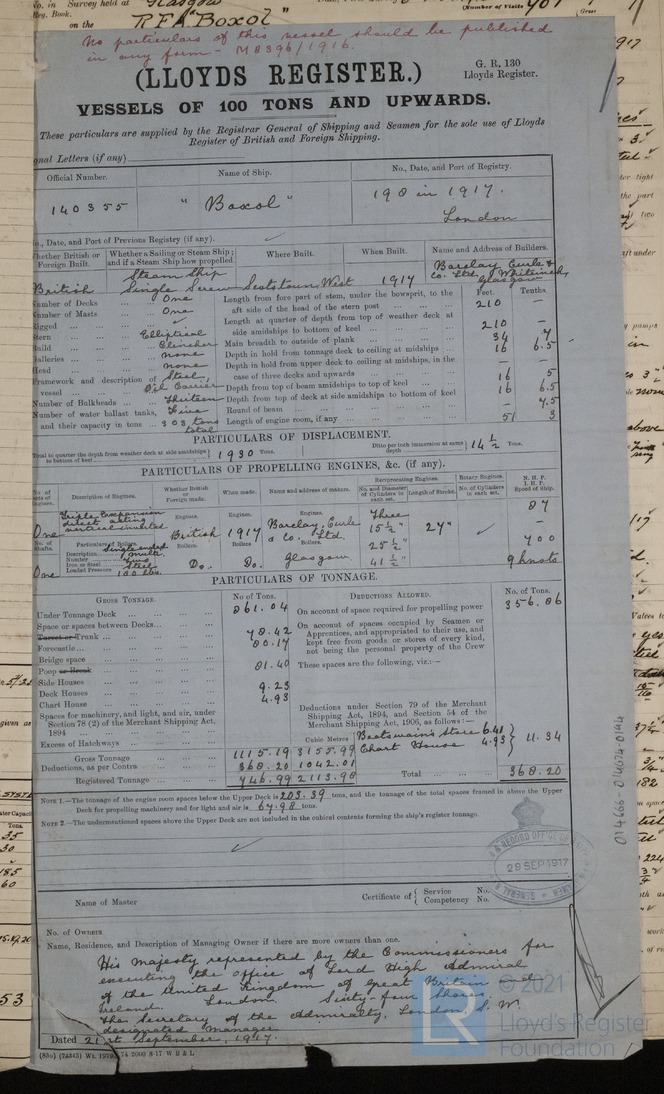 No. in Survey held at Glasgow
Reg. Book.
(Number of Visits 40)
on the RFA "Boxol"
No particulars of this vessel should be published
in any form - M8396/1916.
(LLOYDS REGISTER.)
G. R. 130
Lloyds Register.
VESSELS OF 100 TONS AND UPWARDS.
These particulars are supplied by the Registrar General of Shipping and Seamen for the sole use of Lloyds
Register of British and Foreign Shipping.
onal Letters (if any)
Official Number. Name of Ship. No., Date, and Port of Registry.
140355 "Boxol" 198 in 1917.
London
No., Date, and Port of Previous Registry (if any).
Whether British or Foreign Built. Whether a Sailing or Steam Ship; and if a Steam Ship how propelled. Where Built. When Built. Name and Address of Builders.
British Steam Ship Single Screw Scotstoun West 1917 Barclay Curle & Co. Ltd. Whiteinch, Glasgow
Feet. Tenths.
Number of Decks ... One
Number of Masts ... One
Rigged
Stern ... Elliptical
Build ... Clincher
Galleries ... none
Head ... none
Framework and description of vessel ... Steel, Oil Carrier
Number of Bulkheads ... Thirteen
Number of water ballast tanks, and their capacity in tons ... Five 303 tons total
Length from fore part of stem, under the bowsprit, to the aft side of the head of the stern post ... 210 —
Length at quarter of depth from top of weather deck at side amidships to bottom of keel ... 210 —
Main breadth to outside of plank ... 34 7
Depth in hold from tonnage deck to ceiling at midships ... 16 6.5
Depth in hold from upper deck to ceiling at midships, in the case of three decks and upwards ... — —
Depth from top of beam amidships to top of keel ... 16 5
Depth from top of deck at side amidships to bottom of keel 16 6.5
Round of beam ... — 7.5
Length of engine room, if any ... 51 3
PARTICULARS OF DISPLACEMENT.
Total to quarter the depth from weather deck at side amidships to bottom of keel 1930 Tons. Ditto per inch immersion at same depth 14 1/2 Tons.
PARTICULARS OF PROPELLING ENGINES, &c. (if any).
No. of sets of Engines. Description of Engines. Whether British or Foreign made. When made. Name and address of makers. Reciprocating Engines. No. and Diameter of Cylinders in each set. Length of Stroke. Rotary Engines. No. of Cylinders in each set. N. H. P. I. H. P. Speed of Ship.
One Triple Expansion direct acting vertical inverted British 1917 Barclay, Curle & Co. Ltd. Three 15 1/2" 25 1/2" 41 1/2" 27" 87
No. of Shafts. Particulars of Boilers. Boilers. Boilers. Boilers.
Description Single ended multr.
Number Two
Iron or Steel Steel
Loaded Pressure 180 lbs.
One Do. Do. Glasgow 700
9 knots
PARTICULARS OF TONNAGE.
GROSS TONNAGE. No of Tons. DEDUCTIONS ALLOWED. No. of Tons.
Under Tonnage Deck ... 861.04
Space or spaces between Decks...
Turret or Trunk ... 78.42
Forecastle ... 80.17
Bridge space
Poop or Break ... 81.40
Side Houses
Deck Houses ... 9.23
Chart House ... 4.93
Spaces for machinery, and light, and air, under Section 78 (2) of the Merchant Shipping Act, 1894
Excess of Hatchways
On account of space required for propelling power 356.86
On account of spaces occupied by Seamen or Apprentices, and appropriated to their use, and kept free from goods or stores of every kind, not being the personal property of the Crew
These spaces are the following, viz.:—
Deductions under Section 79 of the Merchant Shipping Act, 1894, and Section 54 of the Merchant Shipping Act, 1906, as follows:—
Cubic Metres
Boatswain's Store 6.41
Chart House 4.93 } 11.34
Gross Tonnage ... 1115.19 3155.99
Deductions, as per Contra ... 368.20 1042.01
Registered Tonnage ... 746.99 2113.98 Total ... 368.20
NOTE 1.—The tonnage of the engine room spaces below the Upper Deck is 203.39 tons, and the tonnage of the total spaces framed in above the Upper
Deck for propelling machinery and for light and air is 67.98 tons.
NOTE 2.—The undermentioned spaces above the Upper Deck are not included in the cubical contents forming the ship's register tonnage.
& RECORD OFFICE
29 SEP 1917
Name of Master Certificate of { Service No.
Competency No.
No. of Owners
Name, Residence, and Description of Managing Owner if there are more owners than one.
His Majesty represented by the Commissioners for
executing the office of Lord High Admiral
of the United Kingdom of Great Britain and
Ireland. London. Sixty-four Shares.
The Secretary of the Admiralty, London S. W.
designated manager
Dated 21st September, 1917.
(83o) (72343) Wt. 74 2000 8-17 W B & L
014666-014674-0194
LR
© 2021
Lloyd's Register
Foundation